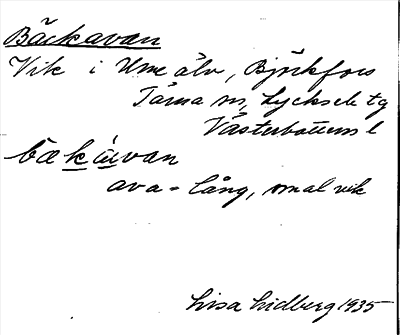 Bäckavan
Vik i Ume älv, Björkfors
Tärna sn, Lycksele tg
Västerbottens l
bækavan
ava = lång, smal vik
Lisa Lidberg 1935